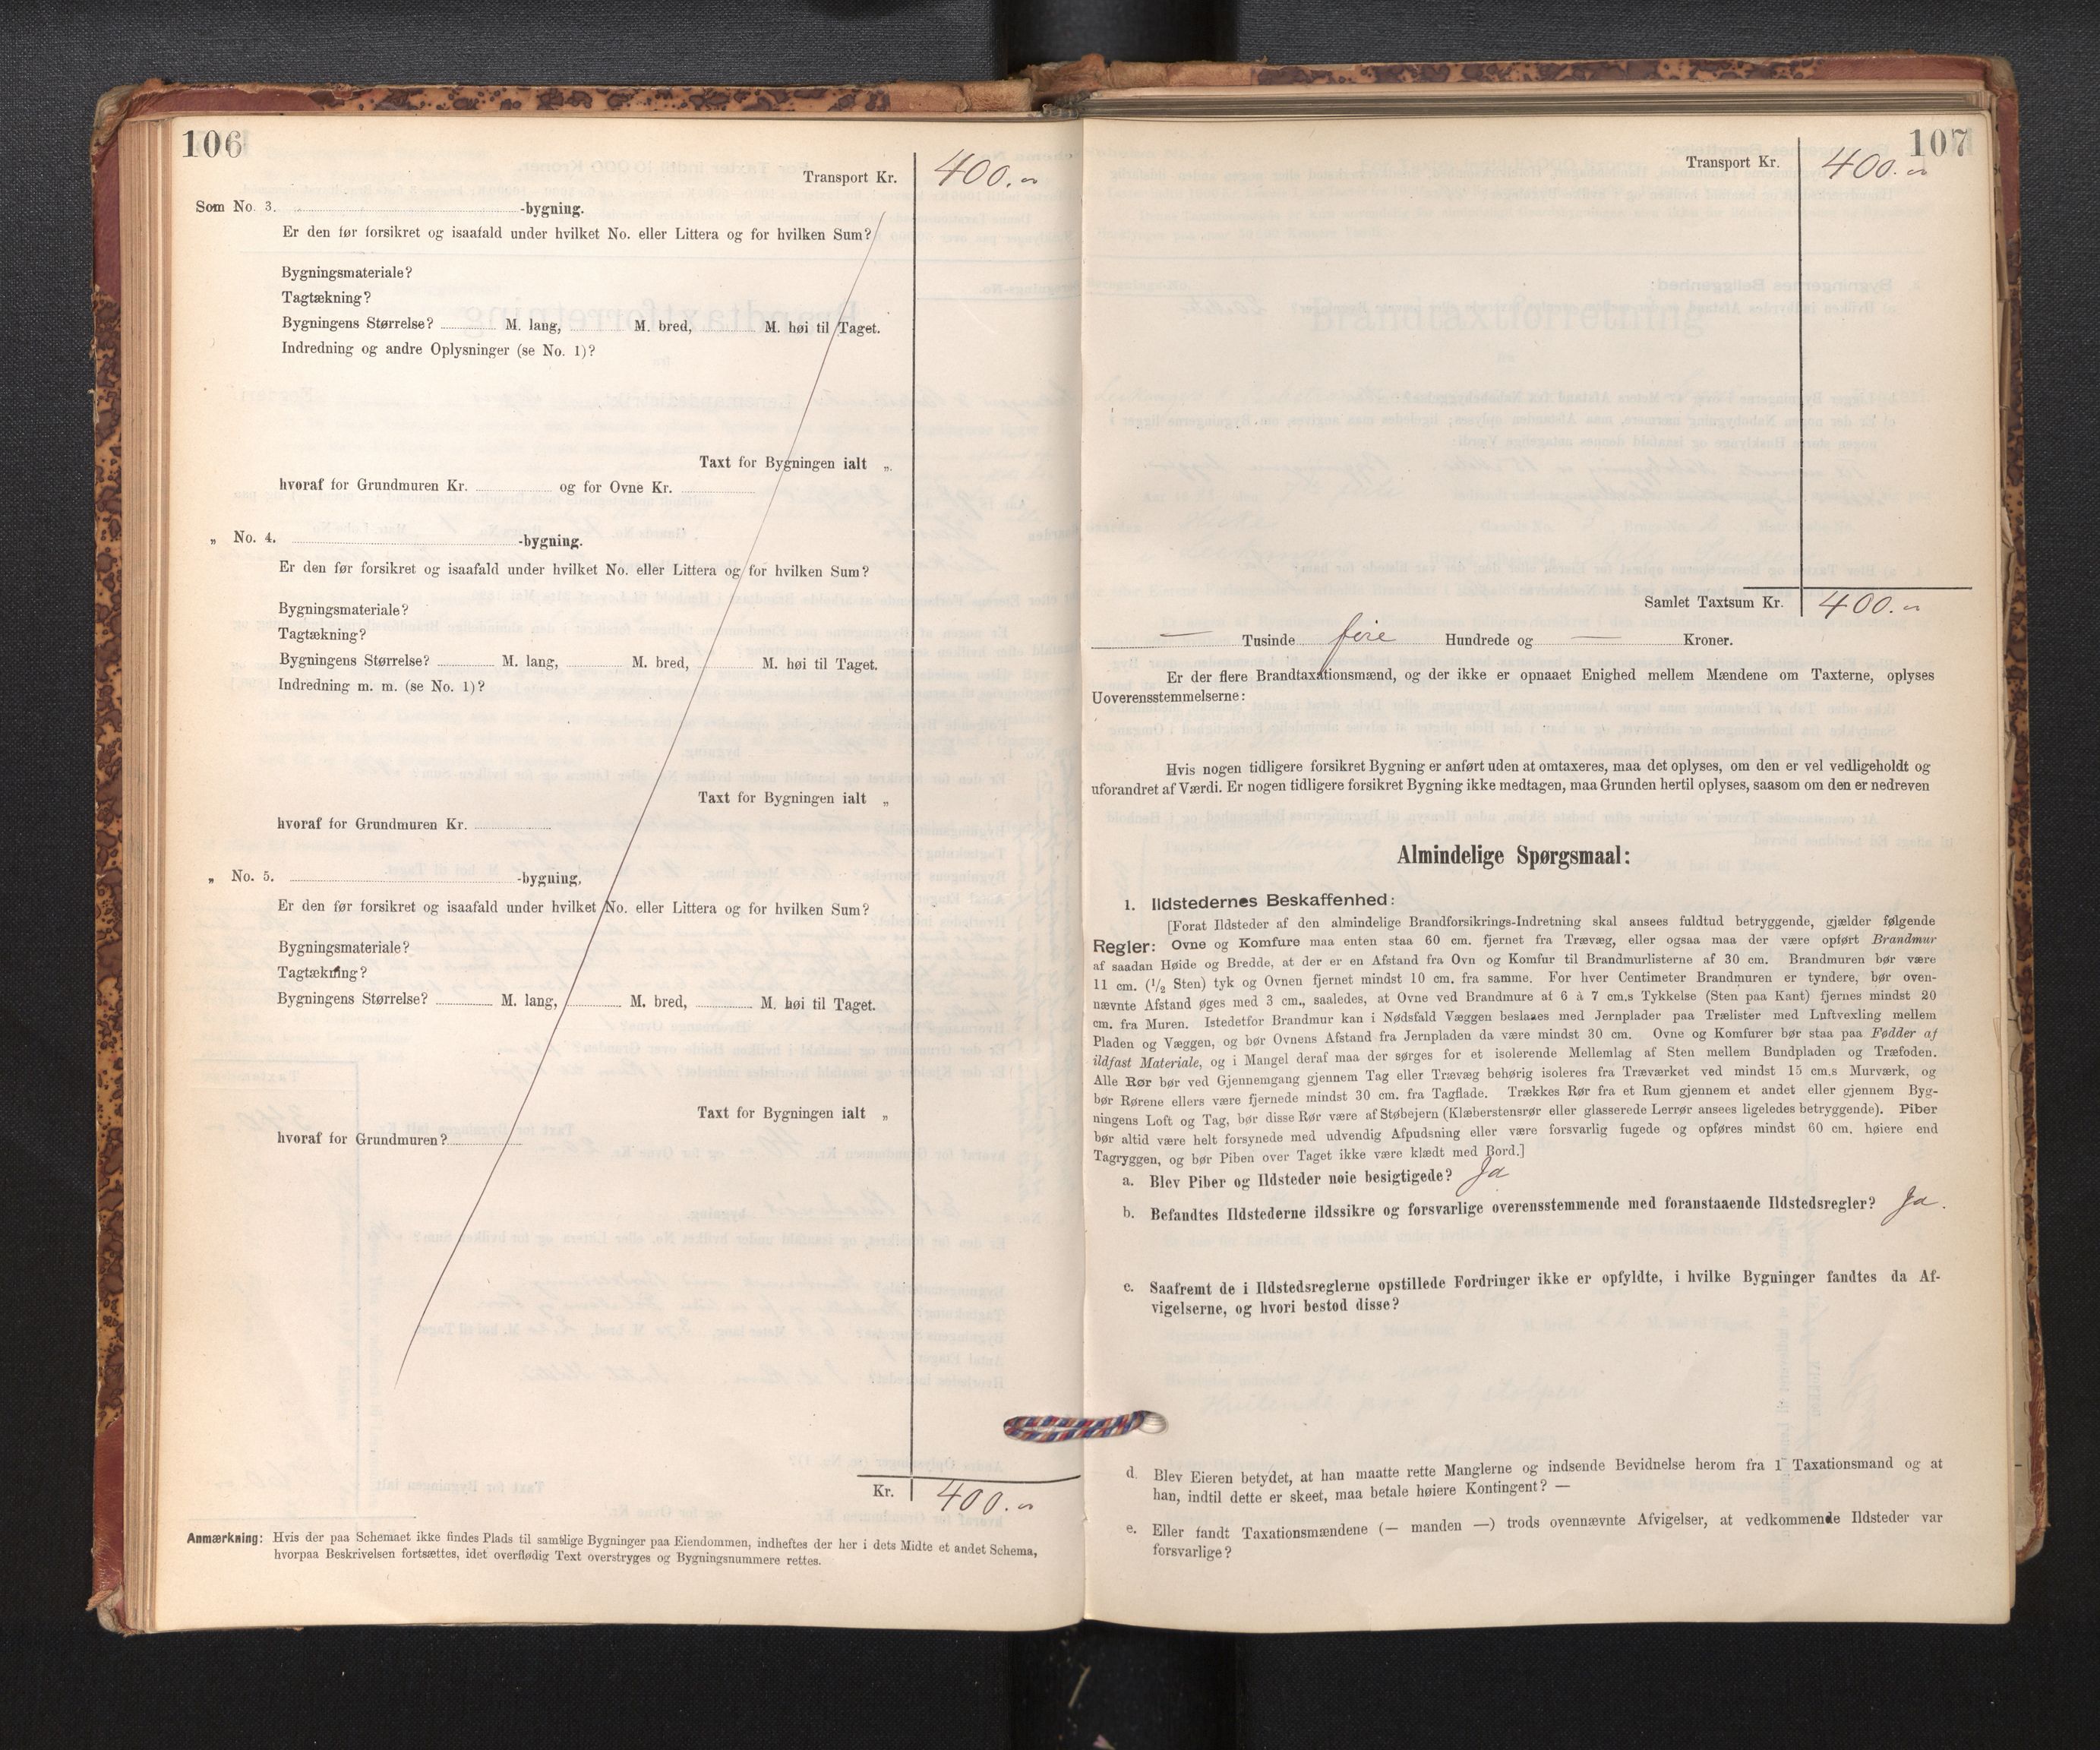 106
Transport Kr. 400.
Som No. 3. -bygning.
Er den før forsikret og isaafald under hvilket No. eller Littera og for hvilken Sum?
Bygningsmateriale?
Tagtækning?
Bygningens Størrelse? M. lang, M. bred, M. høi til Taget.
Indredning og andre Oplysninger (se No. 1)?
Taxt for Bygningen ialt „
hvoraf for Grundmuren Kr. og for Ovne Kr.
„ No. 4. -bygning.
Er den før forsikret og isaafald under hvilket No. eller Littera og for hvilken Sum?
Bygningsmateriale?
Tagtækning?
Bygningens Størrelse? M. lang, M. bred, M. høi til Taget.
Indredning m. m. (se No. 1)?
Taxt for Bygningen ialt „
hvoraf for Grundmuren Kr.
„ No. 5. -bygning,
Er den før forsikret og isaafald under hvilket No. eller Littera og for hvilken Sum?
Bygningsmateriale?
Tagtækning?
Bygningens Størrelse? M. lang, M. bred, M. høi til Taget.
Taxt for Bygningen ialt „
hvoraf for Grundmuren?
Kr. 400.
Anmærkning: Hvis der paa Schemaet ikke findes Plads til samtlige Bygninger paa Eiendommen, indheftes der her i dets Midte et andet Schema,
hvorpaa Beskrivelsen fortsættes, idet overflødig Text overstryges og Bygningsnummere rettes.
107
Transport Kr. 400.
Samlet Taxtsum Kr. 400.
— Tusinde fire Hundrede og — Kroner.
Er der flere Brandtaxationsmænd, og der ikke er opnaaet Enighed mellem Mændene om Taxterne, oplyses
Uoverensstemmelserne:
Hvis nogen tidligere forsikret Bygning er anført uden at omtaxeres, maa det oplyses, om den er vel vedligeholdt og
uforandret af Værdi. Er nogen tidligere forsikret Bygning ikke medtagen, maa Grunden hertil oplyses, saasom om den er nedreven
Almindelige Spørgsmaal:
1. Ildstedernes Beskaffenhed:
[Forat Ildsteder af den almindelige Brandforsikrings-Indretning skal ansees fuldtud betryggende, gjælder følgende
Regler: Ovne og Komfure maa enten staa 60 cm. fjernet fra Trævæg, eller ogsaa maa der være opført Brandmur
af saadan Høide og Bredde, at der er en Afstand fra Ovn og Komfur til Brandmurlisterne af 30 cm. Brandmuren bør være
11 cm. (1/2 Sten) tyk og Ovnen fjernet mindst 10 cm. fra samme. For hver Centimeter Brandmuren er tyndere, bør oven-
nævnte Afstand øges med 3 cm., saaledes, at Ovne ved Brandmure af 6 à 7 cm.s Tykkelse (Sten paa Kant) fjernes mindst 20
cm. fra Muren. Istedetfor Brandmur kan i Nødsfald Væggen beslaaes med Jernplader paa Trælister med Luftvexling mellem
Pladen og Væggen, og bør Ovnens Afstand fra Jernpladen da være mindst 30 cm. Ovne og Komfurer bør staa paa Fødder af
ildfast Materiale, og i Mangel deraf maa der sørges for et isolerende Mellemlag af Sten mellem Bundpladen og Træfoden.
Alle Rør bør ved Gjennemgang gjennem Tag eller Trævæg behørig isoleres fra Træværket ved mindst 15 cm.s Murværk, og
bør Rørene ellers være fjernede mindst 30 cm. fra Tagflade. Trækkes Rør fra et Rum gjennem et andet eller gjennem Byg-
ningens Loft og Tag, bør disse Rør være af Støbejern (Klæberstensrør eller glasserede Lerrør ansees ligeledes betryggende). Piber
bør altid være helt forsynede med udvendig Afpudsning eller være forsvarlig fugede og opføres mindst 60 cm. høiere end
Tagryggen, og bør Piben over Taget ikke være klædt med Bord.]
a. Blev Piber og Ildsteder nøie besigtigede? Ja
b. Befandtes Ildstederne ildssikre og forsvarlige overensstemmende med foranstaaende Ildstedsregler? Ja.
c. Saafremt de i Ildstedsreglerne opstillede Fordringer ikke er opfyldte, i hvilke Bygninger fandtes da Af-
vigelserne, og hvori bestod disse?
d. Blev Eieren betydet, at han maatte rette Manglerne og indsende Bevidnelse herom fra 1 Taxationsmand og at
han, indtil dette er skeet, maa betale høiere Kontingent? —
e. Eller fandt Taxationsmændene (— manden —) trods ovennævnte Afvigelser, at vedkommende Ildsteder var
forsvarlige?